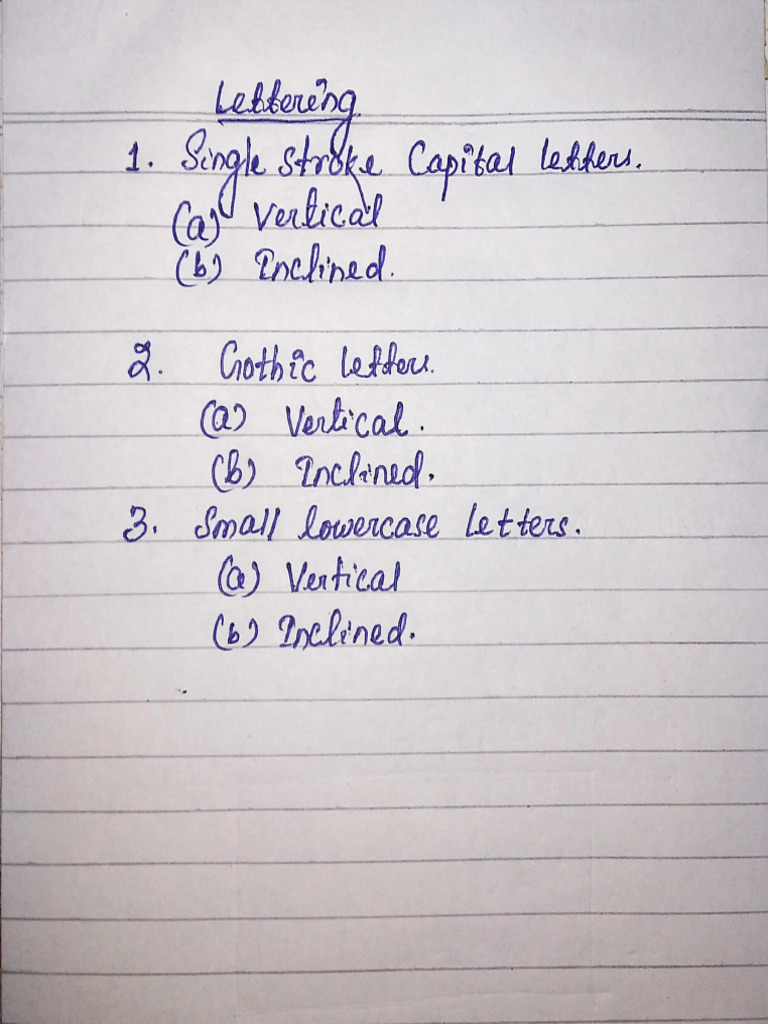 Lettering
1. Single stroke Capital letters.
(a) Vertical
(b) Inclined.
2. Gothic letters.
(a) Vertical.
(b) Inclined.
3. Small lowercase letters.
(a) Vertical
(b) Inclined.